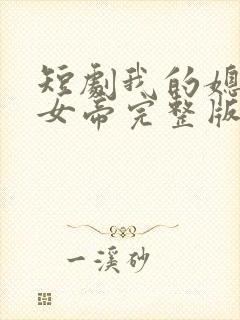 短劇我的媳
女帝完整版
一溪砂